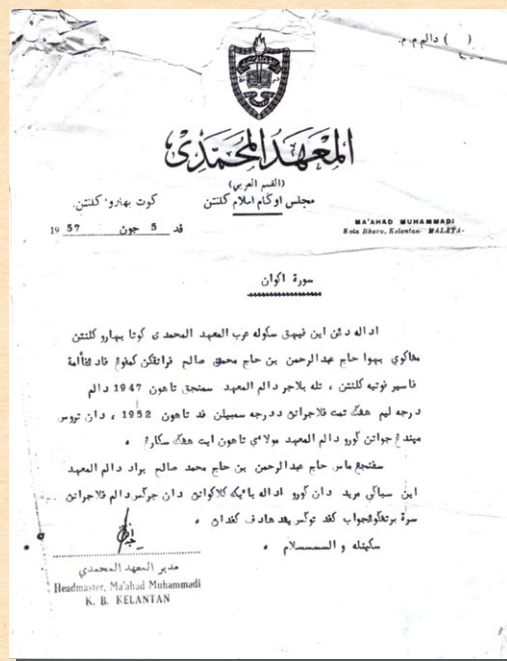 ( ) دالم.م.م.
المعهد المحمدي
(القسم العربي)
مجلس اوݢام اسلام كلنتن
كوت بهارو، كلنتن.
MA'AHAD MUHAMMADI
Kota Bharu, Kelantan- MALAYA-
قد 5 جون 1957
سورة اكوان
اداله دڠن اين فيهق سكوله عرب المعهد المحمدى كوتا بهارو كلنتن
مڠاكوي بهوا حاج عبدالرحمن بن حاج محمد صالح فراتقكن كمفوڠ
فاسير فوتيه كلنتن ، تله بلاجر دالم المعهد سمنجق تاهون 1947 دالم
درجه ليم هڠݢ تمت فلاجرانن ددرجه سمبيلن فد تاهون 1952 ، دان تروس
ميندڠ جواتن ݢورو دالم المعهد مولاءي تاهون ايت هڠݢ سكارڠ .
سفنجڠ ماس حاج عبدالرحمن بن حاج محمد صالح براد دالم المعهد
اين سباݢي مريد دان ݢورو اداله بائيك كلاكوانن دان جرݢس دالم فلاجرانن
سرة برتڠݢوڠجواب كفد توݢس يڠ
سكينله و السـسـسـلام .
مدير المعهد المحمدي
Headmaster, Ma'ahad Muhammadi
K. B. KELANTAN